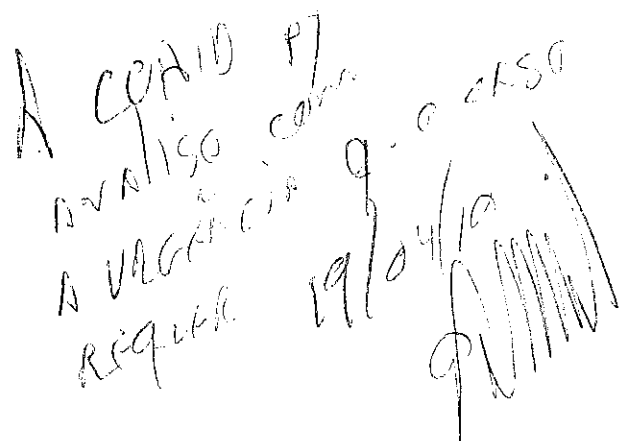 A COMID P/
ANALISO COM
A URGÊNCIA Q. O CASO
REQUER 19/04/10